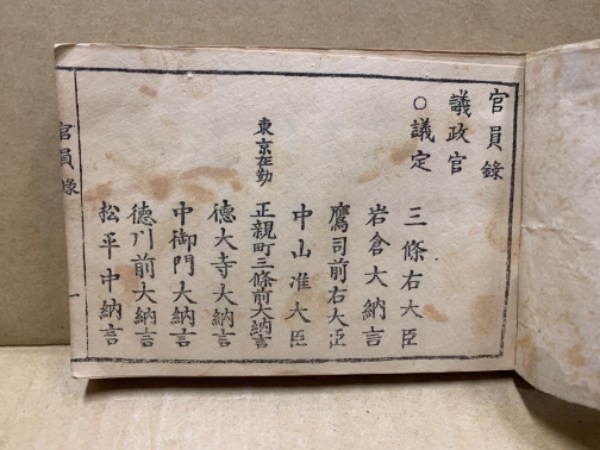 官員録
議政官
○議定
三條右大臣
岩倉大納言
鷹司前右大臣
中山准大臣
東京在勤
正親町三條前大納言
徳大寺大納言
中御門大納言
徳川前大納言
松平中納言
官員録
一